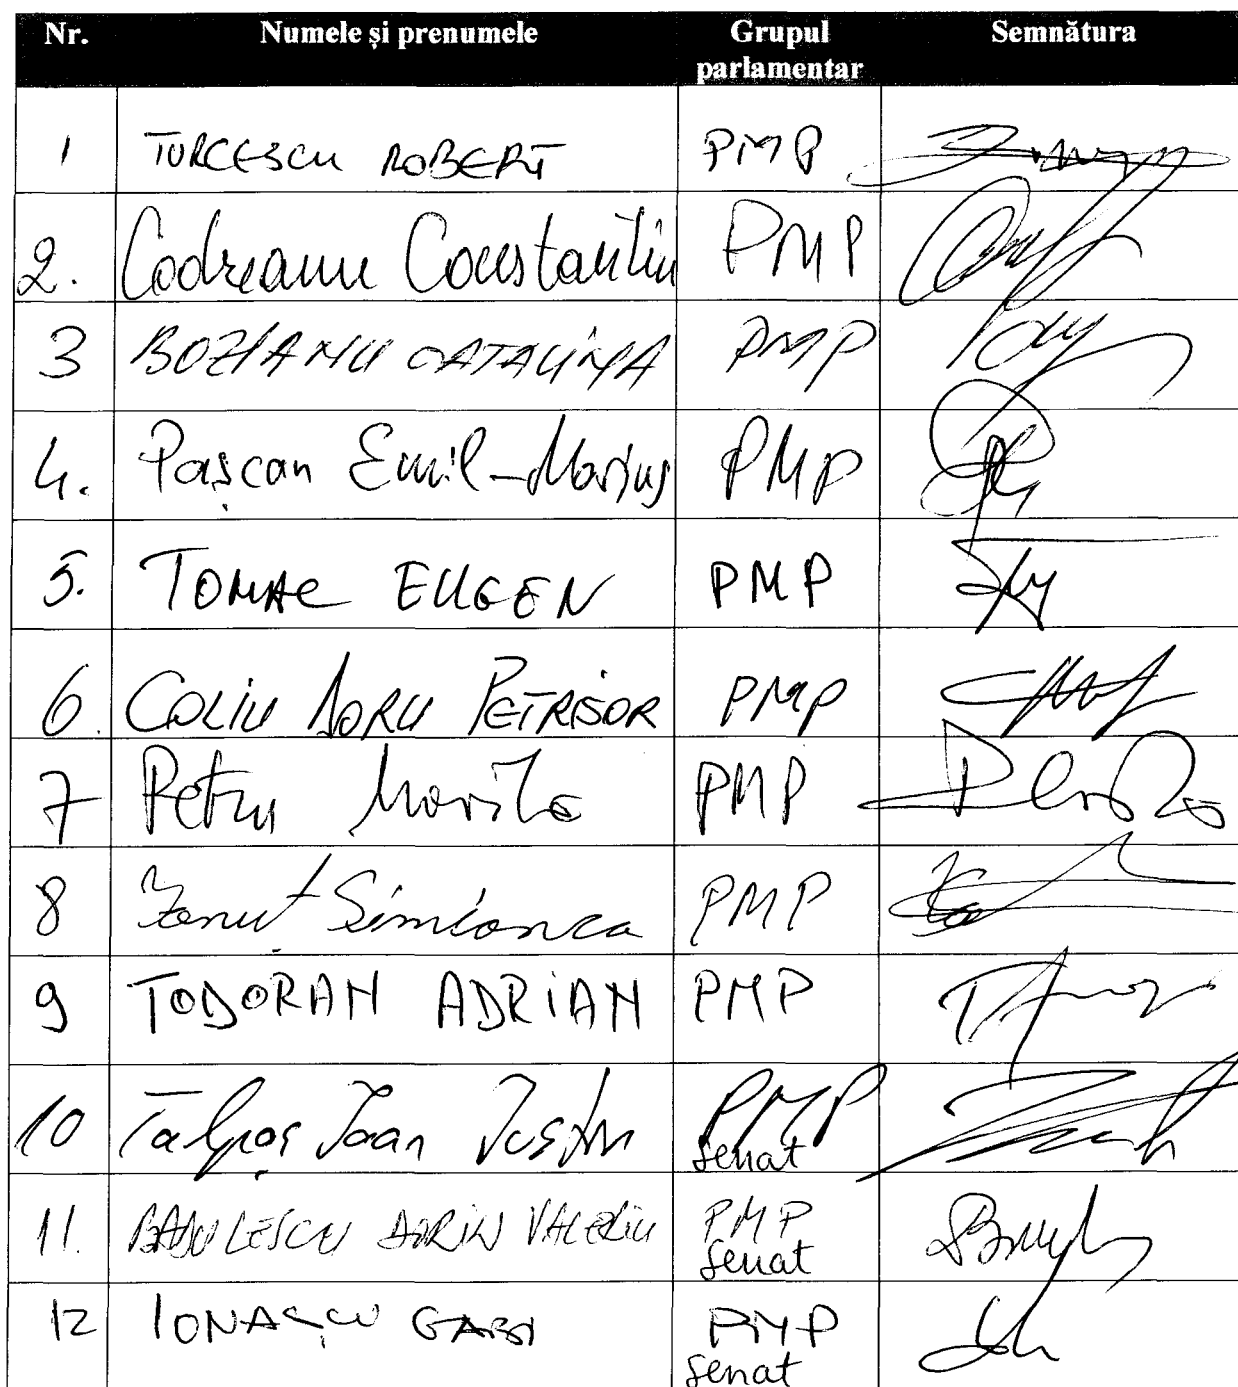 Nr. Numele și prenumele Grupul parlamentar Semnătura
1 TURCESCU ROBERT PMP
2. Codreanu Constantin PMP
3 BOZIANU CATALINA PMP
4. Pașcan Emil-Marius PMP
5. TOMAC EUGEN PMP
6. COLIU DORU PETRISOR PMP
7 Petru Movila PMP
8 Ionuț Simionca PMP
9 TODORAN ADRIAN PMP
10 Talpoș Ioan Iustin PMP senat
11. BADULESCU DORIN VALERIU PMP senat
12 IONAȘCU GABI PMP senat